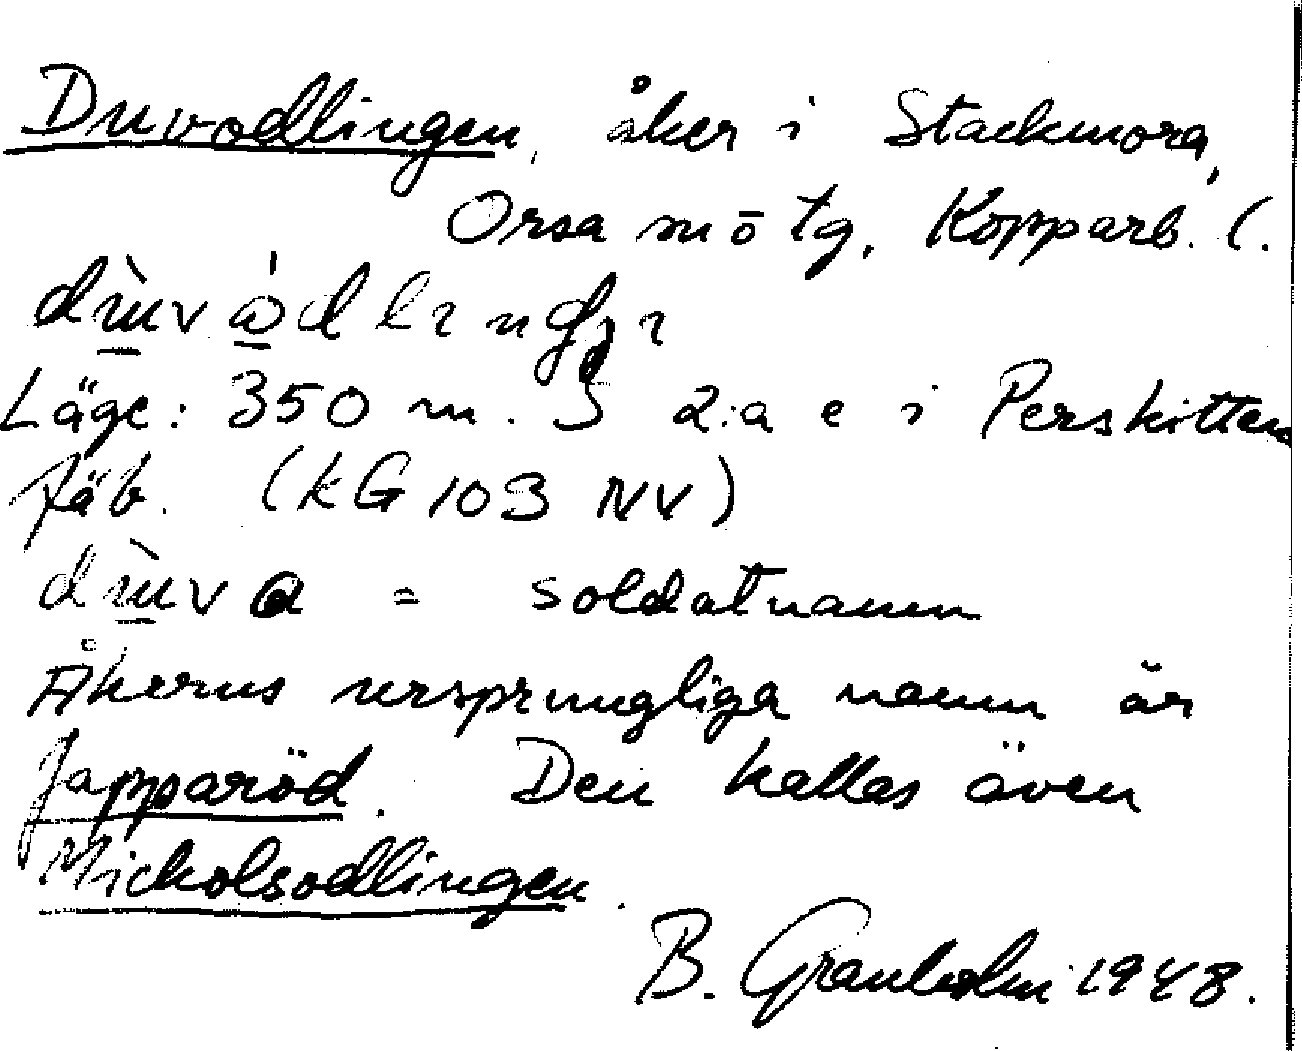 Duvodlingen, åker i Stackmora,
Orsa sn ö tg, Kopparb. l.
Läge: 350 m. S 2:a e i Perskitten
fäb. (KG 103 NV)
= soldatnamn
Åkerns ursprungliga namn är
Japparöd. Den kallas även
Mickolsodlingen.
B. Granholm 1948.